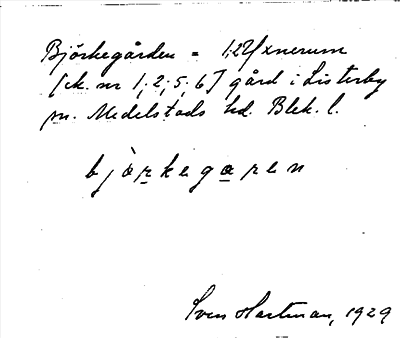 Björkegården = 1,27/xnerum
[sk. nr 1; 2; 5; 6] gård i Listerby
sn. Medelstads hd. Blek. l.
björkegaren
Sven Hartman, 1929